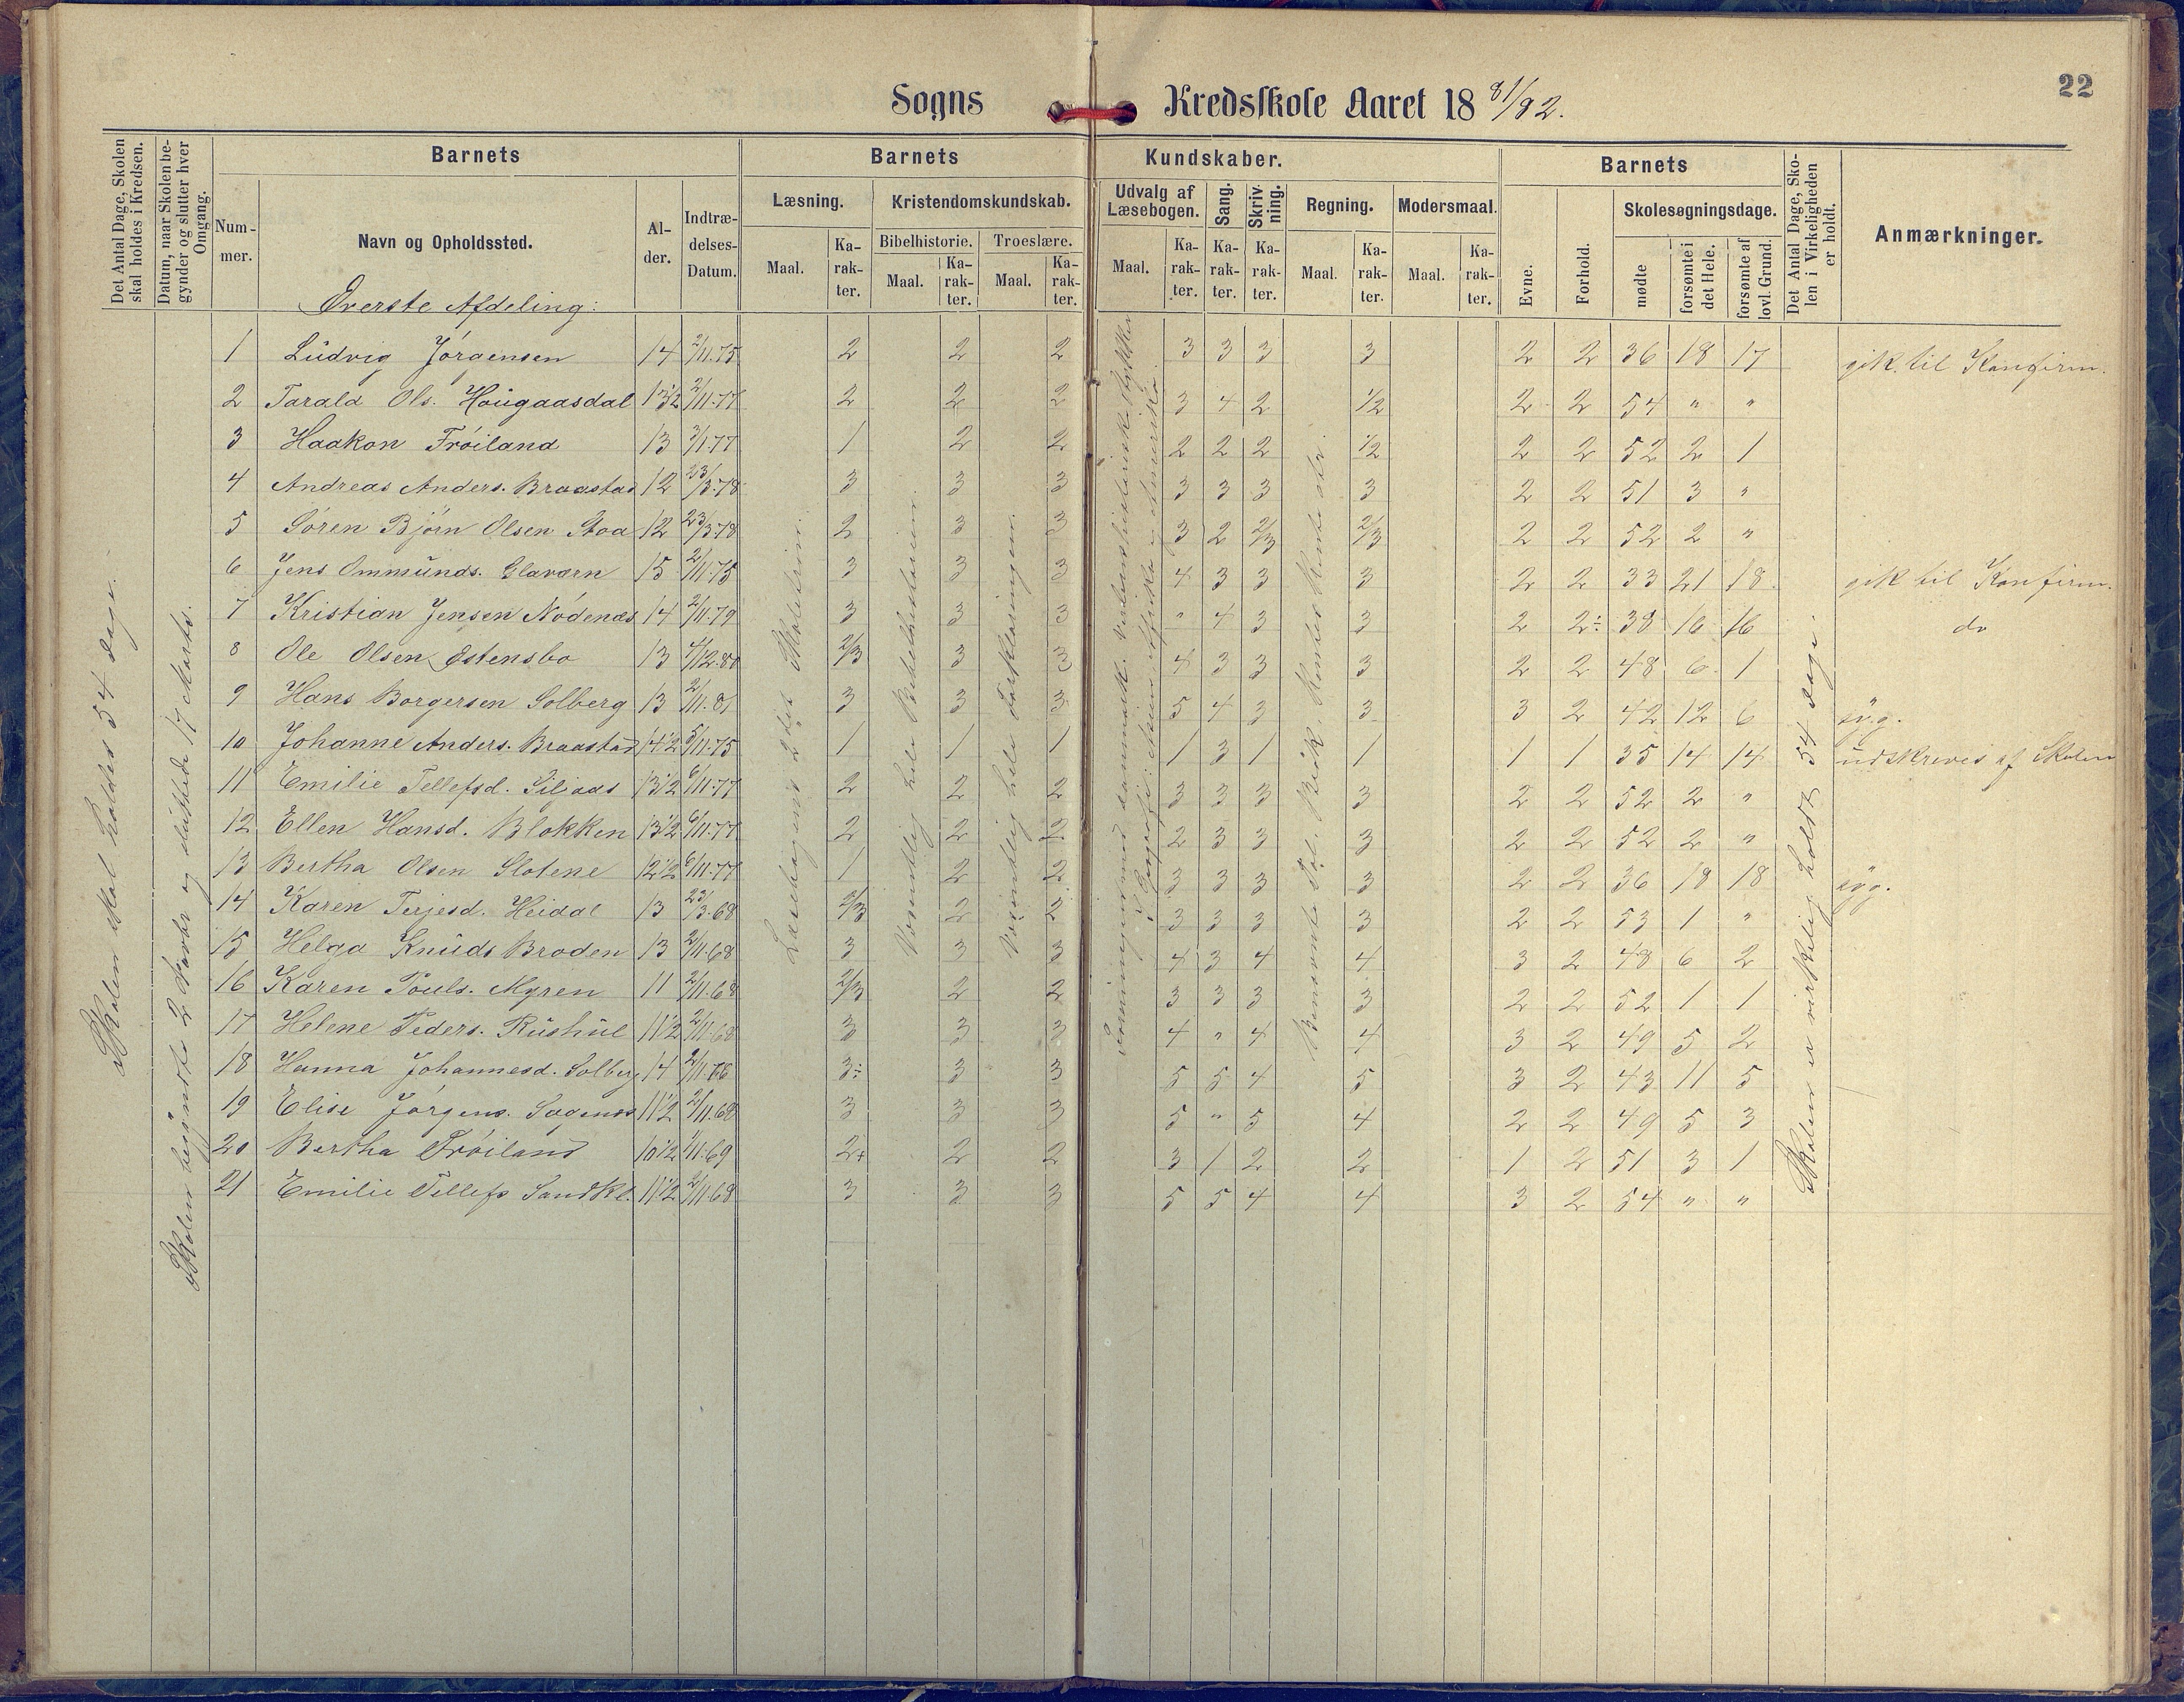 22
Sogns Kredsskole Aaret 18 81/82.
Det Antal Dage, Skolen skal holdes i Kredsen.
Datum, naar Skolen begynder og slutter hver Omgang.
Barnets Barnets Kundskaber. Barnets
Nummer. Navn og Opholdssted. Alder. Indtrædelses-Datum.
Læsning. Kristendomskundskab. Udvalg af Læsebogen. Sang. Skrivning. Regning. Modersmaal.
Bibelhistorie. Troeslære.
Maal. Karakter. Maal. Karakter. Maal. Karakter. Maal. Karakter. Karakter. Karakter. Maal. Karakter. Maal. Karakter.
Evne. Forhold. Skolesøgningsdage. mødte forsømte i det Hele. forsømte af lovl. Grund.
Det Antal Dage, Skolen i Virkeligheden er holdt.
Anmærkninger.
Øverste Afdeling:
1 Ludvig Jørgensen 14 2/11.75 2 2 2 3 3 3 3 2 2 36 18 17 gik til Konfirm.
2 Tarald Ols. Hougaasdal 13 1/2 2/11.77 2 2 2 3 4 2 1/2 2 2 54 " "
3 Haakon Frøiland 13 3/1.77 1 2 2 2 2 2 1/2 2 2 52 2 1
4 Andreas Anders. Braastad 12 23/3.78 3 3 3 3 3 3 3 2 2 51 3 "
5 Søren Bjørn Olsen Stoa 12 23/3.78 2 3 3 3 2 2/3 2/3 2 2 52 2 "
6 Jens Ommunds. Glaværn 15 2/11.75 3 3 3 4 3 3 3 2 2 33 21 18 gik til Konfirm.
7 Kristian Jensen Nødenæs 14 2/11.79 3 3 3 " 4 3 3 2 2÷ 38 16 16 do
8 Ole Olsen Østensbo 13 4/12.80 2/3 3 3 4 3 3 3 2 2 48 6 1
9 Hans Borgersen Solberg 13 2/11.81 3 3 3 5 4 3 3 3 2 42 12 6 syg.
10 Johanne Anders. Braastad 14 1/2 5/11.75 1 1 1 1 3 1 1 1 1 35 14 14 udskreves af Skolen
11 Emilie Tellefsd. Siljaas 13 1/2 6/11.77 2 2 2 3 3 3 3 2 2 52 2 "
12 Ellen Hansd. Blokken 13 1/2 6/11.77 2 2 2 2 3 3 3 2 2 52 2 "
13 Bertha Olsen Slotene 12 1/2 6/11.77 1 2 2 3 3 3 3 2 2 36 18 18 syg.
14 Karen Terjesd. Heidal 13 23/3.68 2/3 2 2 3 3 3 3 2 2 53 1 "
15 Helga Knuds Broden 13 2/11.68 3 3 3 4 3 4 4 3 2 48 6 2
16 Karen Pouls. Myren 11 2/11.68 2/3 2 2 3 3 3 3 2 2 52 1 1
17 Helene Peders. Rushul 11 1/2 2/11.68 3 3 3 4 " 4 4 3 2 49 5 2
18 Hanna Johannesd. Solberg 14 2/11.76 3÷ 3 3 5 5 4 5 3 2 43 11 5
19 Elise Jørgens. Sagenæs 11 1/2 2/11.68 3 3 3 5 " 5 4 2 2 49 5 3
20 Bertha Frøiland 10 1/2 1/11.69 2+ 2 2 3 1 2 2 1 2 51 3 1
21 Emilie Tellefs Sandkl. 11 1/2 2/11.68 3 3 3 5 5 4 4 3 2 54 " "
Skolen skal holdes 54 dage.
Skolen begyndte 2 Novbr og sluttede 17 Marts.
Læsebogens 2det Skoletrin.
Væsentlig hele Bibelhistorien.
Væsentlig hele Forklaringen.
Skolen er virkelig holdt 54 dage.